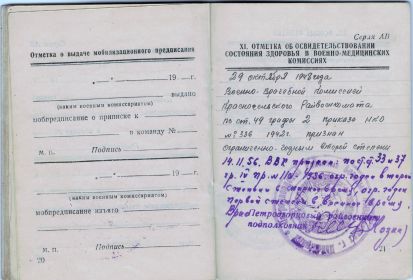 Отметка о выдаче мобилизационного предписания
„—“ 19 — г.
выдано
(каким военным комиссариатом)
мобпредписание о приписке к
в команду №
М. п. Подпись
„—“ 19 — г.
(каким военным комиссариатом)
мобпредписание изъято
М. п. Подпись
20
Серия АВ
XI. ОТМЕТКА ОБ ОСВИДЕТЕЛЬСТВОВАНИИ
СОСТОЯНИЯ ЗДОРОВЬЯ В ВОЕННО-МЕДИЦИНСКИХ
КОМИССИЯХ
29 октября 1948 года
Военно-врачебной комиссией
Красносельского Райвоенкомата
по ст. 49 графы 2 приказа НКО
№ 336 1942 г. признан
ограниченно-годным второй степени
14.11.56. ВВК признан: по ст. 33 и 37
гр. IV пр. 1956. огр. годен второй
степени в мирное время, огр. годен
первой степени в военное время.
подполковник
21